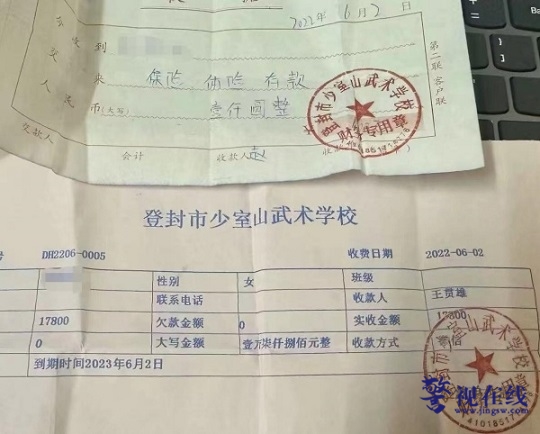 2022年6月2日
今收到
来 保险 体险 存款
人民币(大写) 壹仟圆整
第二联 客户联
登封市少室山武术学校
财务专用章
交款人 会计 收款人 赵
登封市少室山武术学校
号 DH2206-0005 收费日期 2022-06-02
性别 女 班级
联系电话 收款人 王贯雄
17800 欠款金额 0 实收金额 17800
0 大写金额 壹万柒仟捌佰元整 收款方式 微信
到期时间2023年6月2日
登封市少室山武术学校
警视在线
www.jingsw.com